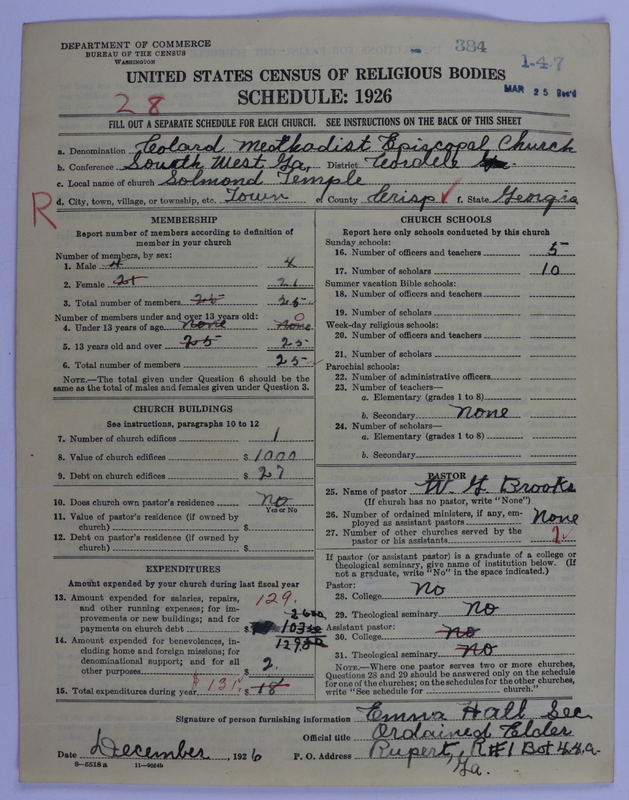 DEPARTMENT OF COMMERCE
BUREAU OF THE CENSUS
WASHINGTON
384
1-47
MAR 25 Rec'd
UNITED STATES CENSUS OF RELIGIOUS BODIES
SCHEDULE: 1926
28
FILL OUT A SEPARATE SCHEDULE FOR EACH CHURCH. SEE INSTRUCTIONS ON THE BACK OF THIS SHEET
a. Denomination Colard Methadist Episcopal Church
b. Conference South West Ga, District Cordele
c. Local name of church Solmond Temple
R
d. City, town, village, or township, etc. Town e. County Crisp f. State Georgia
MEMBERSHIP
Report number of members according to definition of
member in your church
Number of members, by sex:
1. Male 4 4
2. Female 21 21
3. Total number of members 25 25
Number of members under and over 13 years old:
4. Under 13 years of age None None 0
5. 13 years old and over 25 25
6. Total number of members 25
NOTE.—The total given under Question 6 should be
the same as the total of males and females given under Question 3.
CHURCH BUILDINGS
See instructions, paragraphs 10 to 12
7. Number of church edifices 1
8. Value of church edifices $ 1000
9. Debt on church edifices $ 27
10. Does church own pastor's residence No
Yes or No
11. Value of pastor's residence (if owned by
church) $
12. Debt on pastor's residence (if owned by
church) $
EXPENDITURES
Amount expended by your church during last fiscal year
13. Amount expended for salaries, repairs, 129.
and other running expenses; for im-
provements or new buildings; and for
payments on church debt $
14. Amount expended for benevolences, in-
cluding home and foreign missions; for
denominational support; and for all
other purposes $ 2.
15. Total expenditures during year $ 131 $ 18
CHURCH SCHOOLS
Report here only schools conducted by this church
Sunday schools:
16. Number of officers and teachers 5
17. Number of scholars 10
Summer vacation Bible schools:
18. Number of officers and teachers
19. Number of scholars
Week-day religious schools:
20. Number of officers and teachers
21. Number of scholars
Parochial schools:
22. Number of administrative officers
23. Number of teachers—
a. Elementary (grades 1 to 8)
b. Secondary None
24. Number of scholars—
a. Elementary (grades 1 to 8)
b. Secondary
PASTOR
25. Name of pastor W. G. Brooks
(If church has no pastor, write "None")
26. Number of ordained ministers, if any, em-
ployed as assistant pastors None
27. Number of other churches served by the
pastor or his assistants
If pastor (or assistant pastor) is a graduate of a college or
theological seminary, give name of institution below. (If
not a graduate, write "No" in the space indicated.)
Pastor:
28. College No
29. Theological seminary No
Assistant pastor:
30. College No
31. Theological seminary No
NOTE.—Where one pastor serves two or more churches,
Questions 28 and 29 should be answered only on the schedule
for one of the churches; on the schedules for the other churches,
write "See schedule for church."
Signature of person furnishing information Emma Hall Sec
Official title Ordained Elder
Date December, 1926 P. O. Address Rupert, R#1 Bot 44a.
Ga.
8—5518a 11—9064b